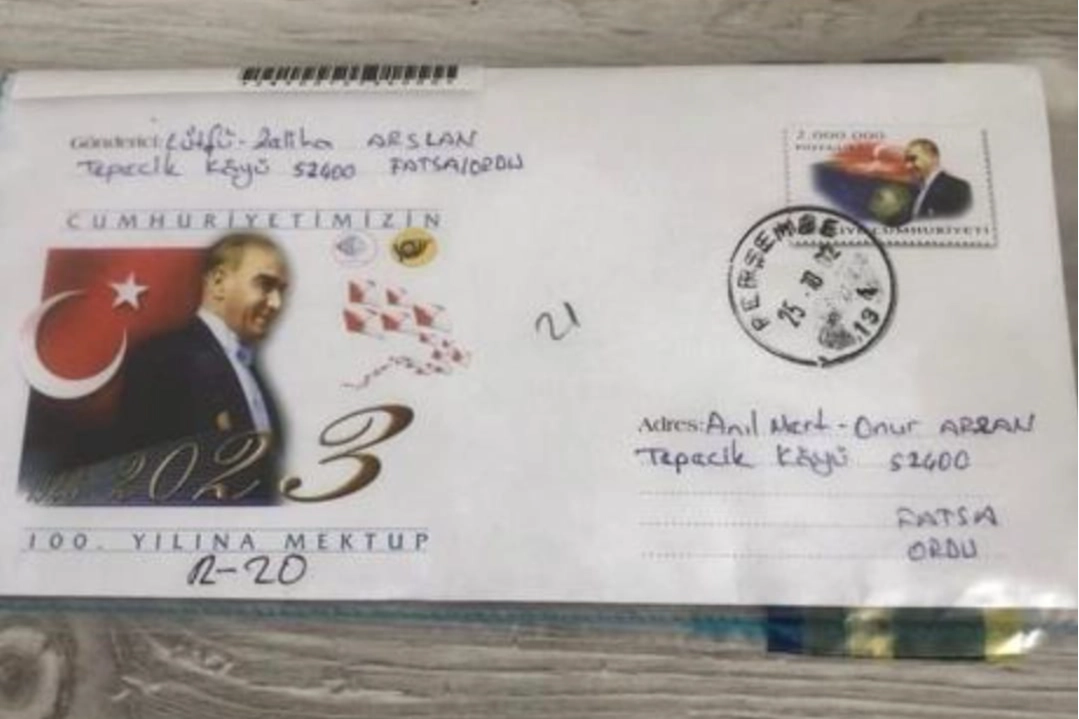 Gönderici: Lütfü-Zaliha ARSLAN
Tepecik Köyü 52400 FATSA/ORDU
CUMHURİYETİMİZİN
2023
100. YILINA MEKTUP
R-20
21
2.000.000
CUMHURİYETİ
PERŞEMBE
25
19
Adres: Anıl Mert-Onur ARSLAN
Tepecik Köyü 52400
FATSA
ORDU